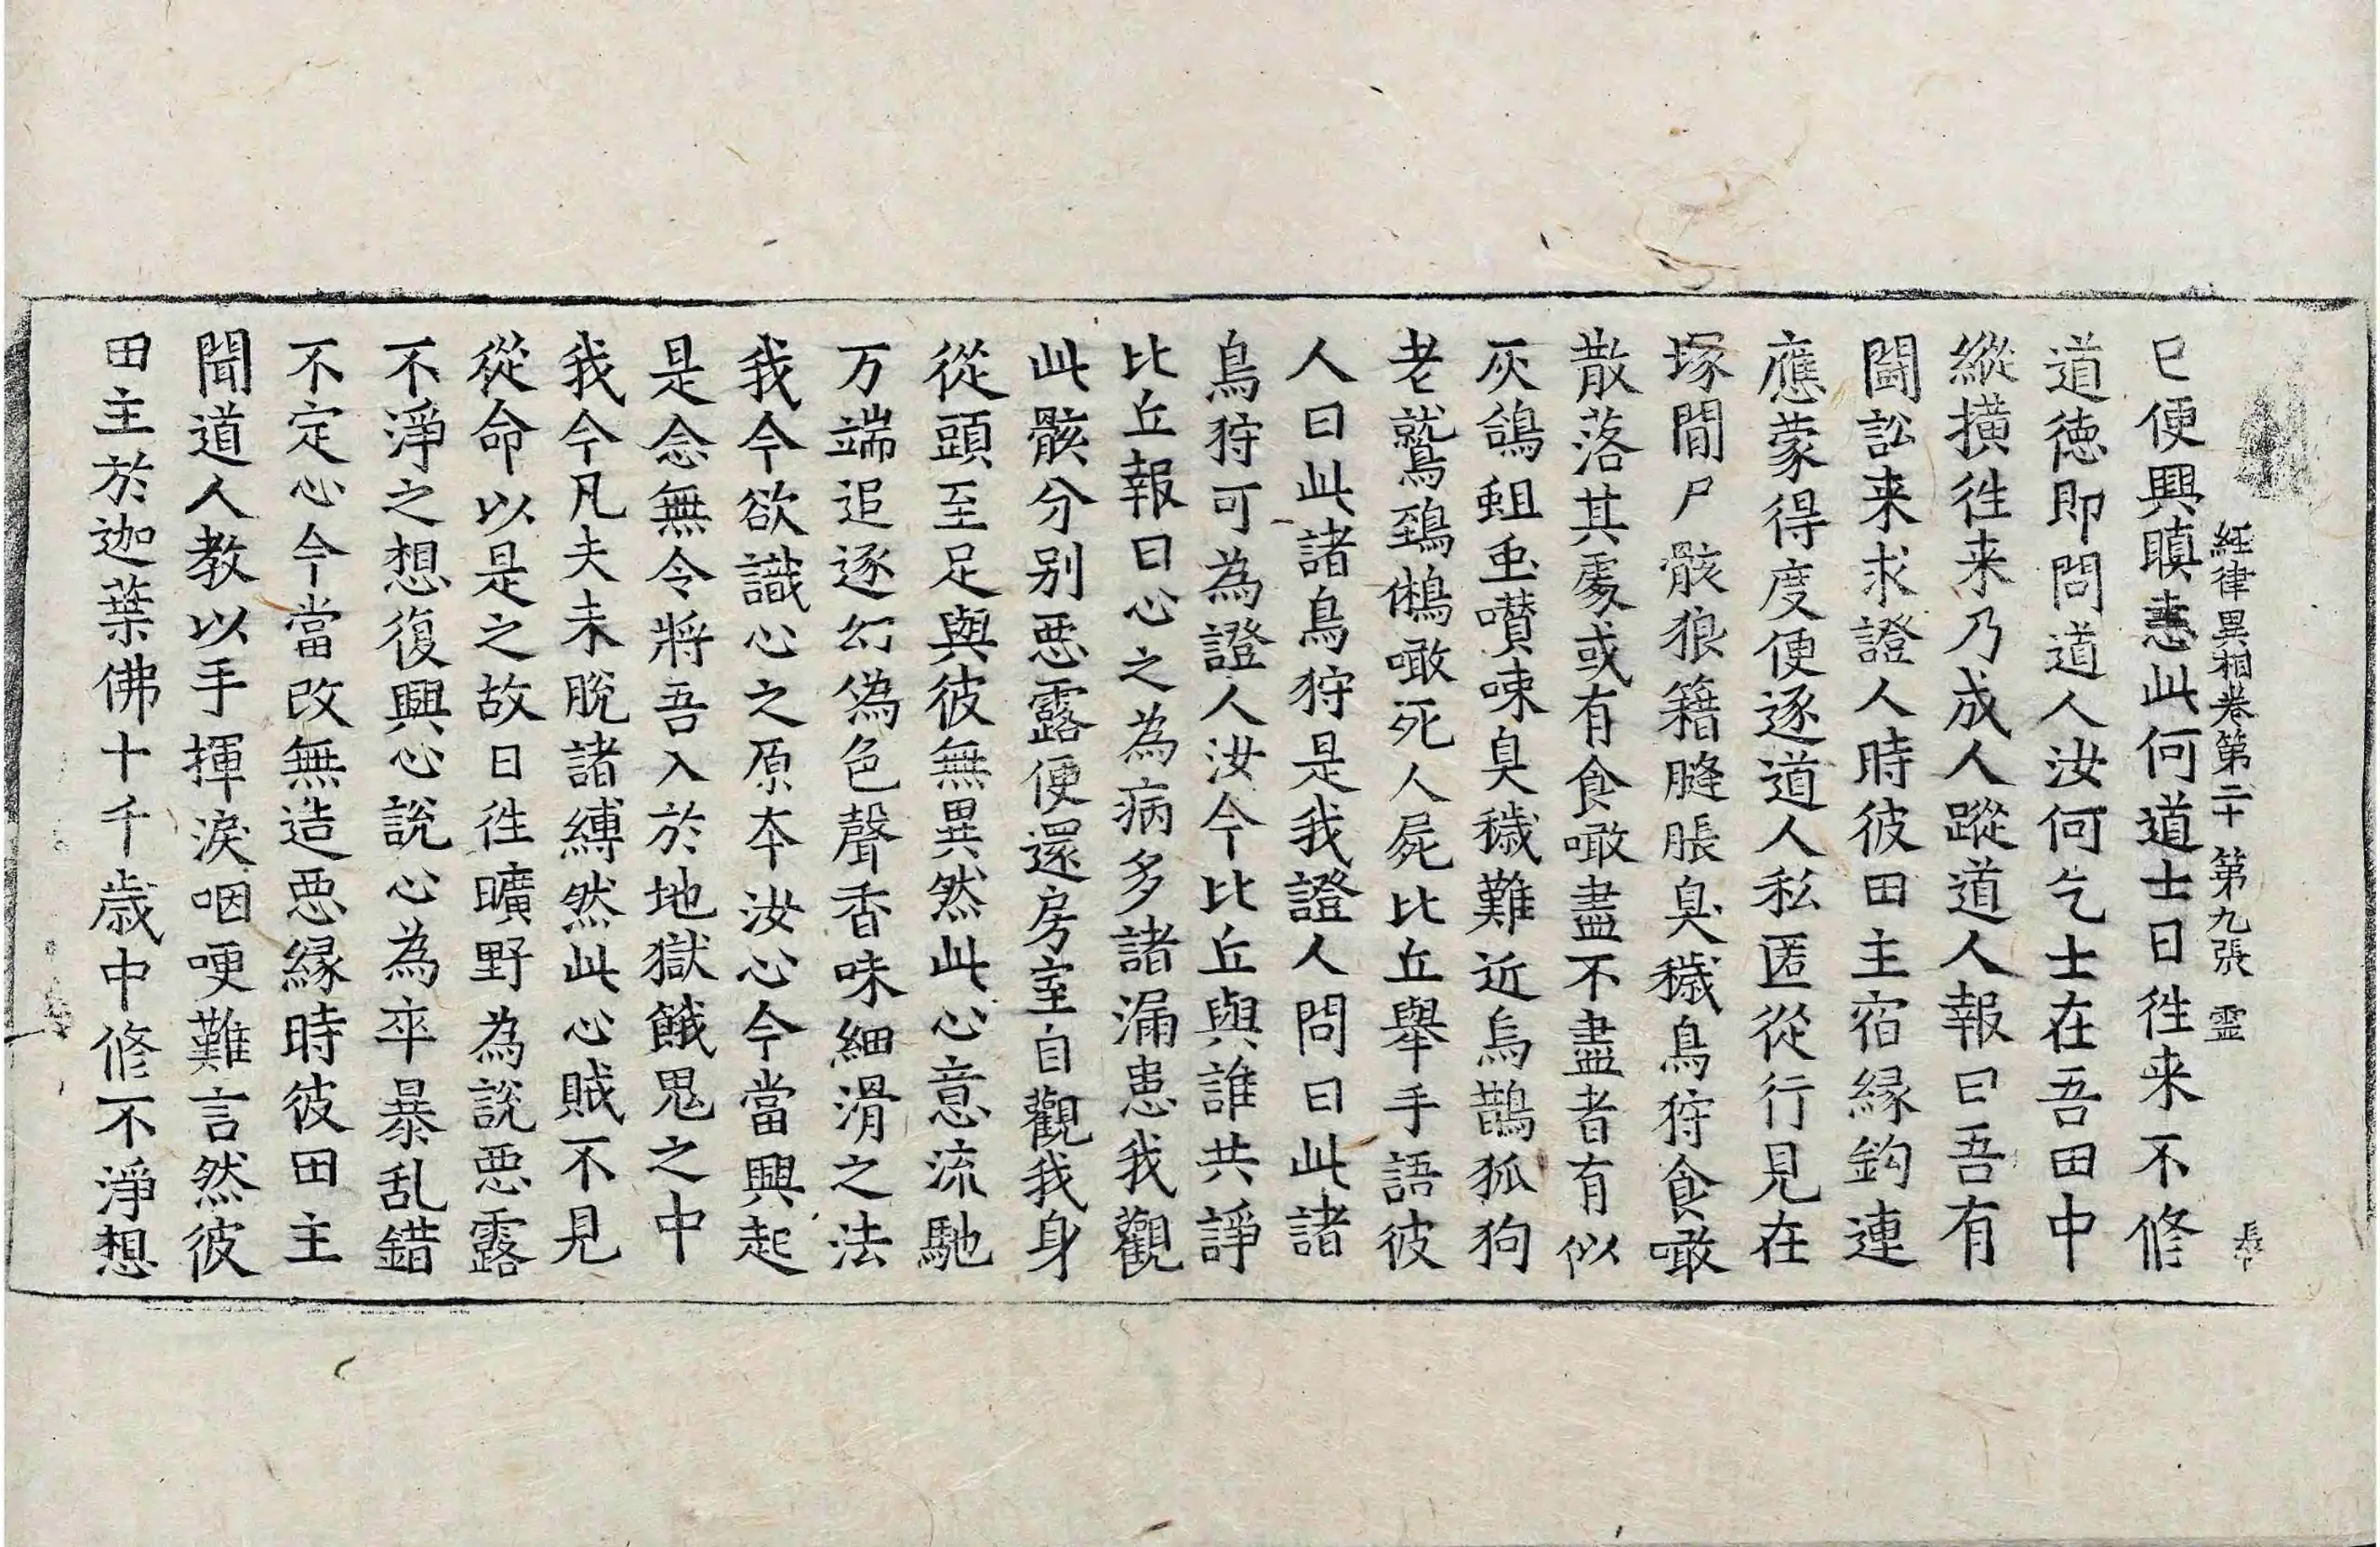 経律異相卷第二十 第九張 霊
已便興瞋恚此何道士日徃来不修
道徳即問道人汝何乞士在吾田中
縱撗徃来乃成人蹤道人報曰吾有
闘訟来求證人時彼田主宿縁鈎連
應蒙得度便逐道人私匿從行見在
塚間尸骸狼籍膖脹臭穢鳥狩食噉
散落其䖏或有食噉盡不盡者有似
灰鴿蛆䖝囋唼臭穢難近烏鵲狐狗
老鷲鵄鵂噉死人屍比丘舉手語彼
人曰此諸鳥狩是我證人問曰此諸
鳥狩可為證人汝今比丘與誰共諍
比丘報曰心之為病多諸漏患我觀
此骸分别惡露便還房室自觀我身
從頭至足與彼無異然此心意流馳
万端追逐幻偽色聲香味細滑之法
我今欲識心之原夲汝心今當興起
是念無令將吾入於地獄餓鬼之中
我今凡夫未脫諸縛然此心賊不見
從命以是之故日徃曠野為說惡露
不淨之想復興心說心為卒暴乱錯
不定心今當改無造惡縁時彼田主
聞道人教以手揮淚咽哽難言然彼
田主於迦葉佛十千歲中修不淨想